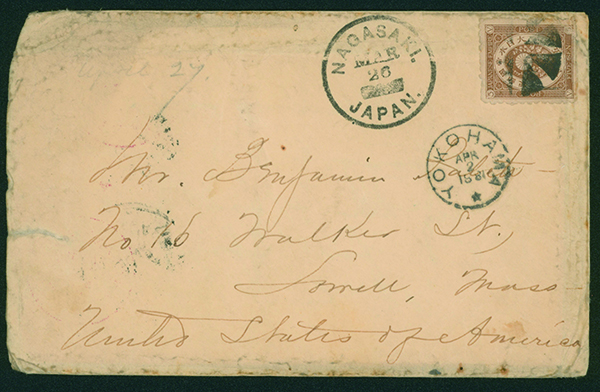 NAGASAKI.
MAR
26
JAPAN.
YOKOHAMA
APR
2
1881
Mr. Benjamin
No. 16 Walker St,
Lowell, Mass
United States of America